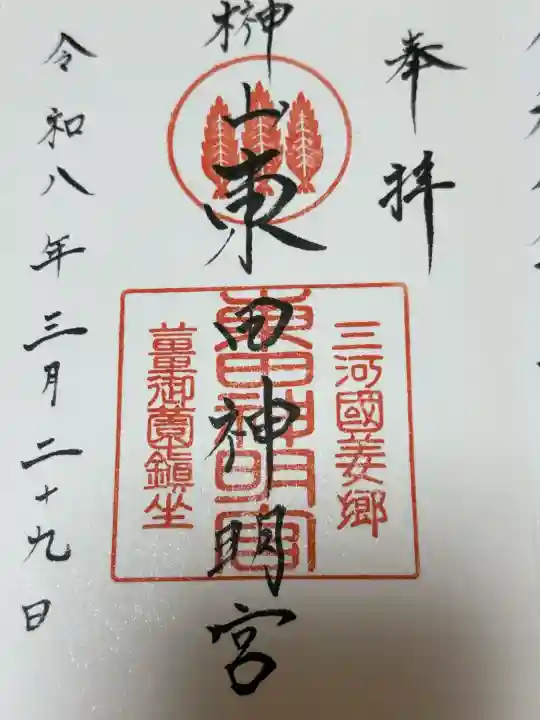 奉拝
榊山東田神明宮
三河國姜郷
東田神明宮
薑御薗鎭坐
令和八年三月二十九日